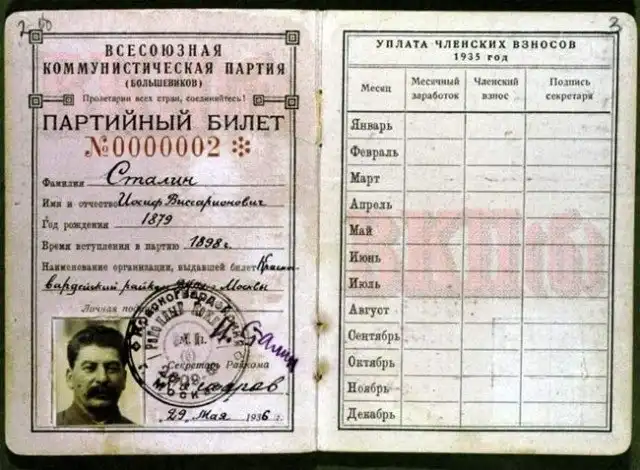 2
ВСЕСОЮЗНАЯ
КОММУНИСТИЧЕСКАЯ ПАРТИЯ
(БОЛЬШЕВИКОВ)
Пролетарии всех стран, соединяйтесь!
ПАРТИЙНЫЙ БИЛЕТ
№0000002
Фамилия Сталин
Имя и отчество Иосиф Виссарионович
Год рождения 1879
Время вступления в партию 1898г.
Наименование организации, выдавшей билет Красно-
вардейский райком Москвы
Личная
М.П.
И. Сталин
Секретарь Райкома
29 Мая 1936 г.
МОСКВА
3
УПЛАТА ЧЛЕНСКИХ ВЗНОСОВ
1935 год
Месяц Месячный заработок Членский взнос Подпись секретаря
Январь
Февраль
Март
Апрель
Май
Июнь
Июль
Август
Сентябрь
Октябрь
Ноябрь
Декабрь
ВКП(б)